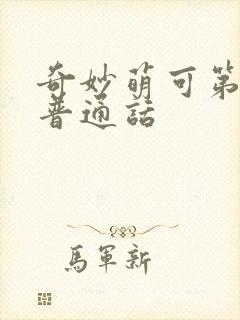 奇妙萌可第
普通話
馬軍新